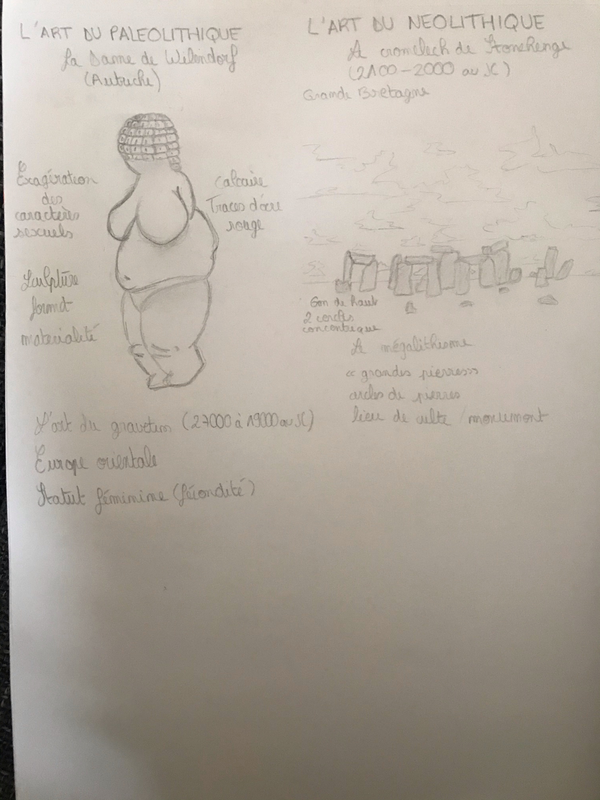 L'ART DU PALEOLITHIQUE
La Dame de Wilendorf
(Autriche)
Exagération
des
caractères
sexuels
Calcaire
Traces d'ocre
rouge
Sculpture
format
matérialité
L'art du gravetien (27000 à 19000 av JC)
Europe orientale
Statut féminime (fécondité)
L'ART DU NEOLITHIQUE
Le cromelech de Stonehenge
(2100-2000 av JC)
Grande Bretagne
6m de haut
2 cercles
concentrique
Le mégalithisme
grandes pierres
cercles de pierres
lieu de culte / monument